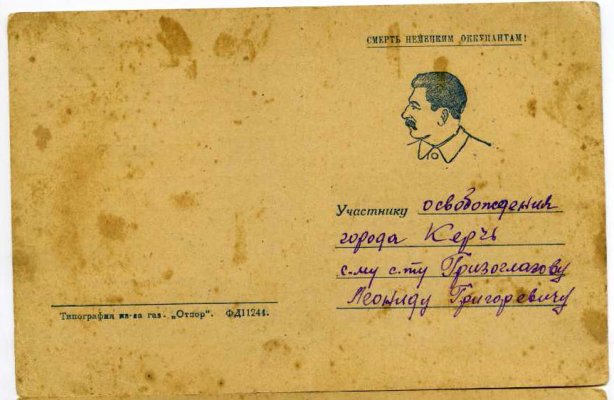 СМЕРТЬ НЕМЕЦКИМ ОККУПАНТАМ!
Участнику освобождения
города Керчь
с-му с-ту Гризоглазову
Леониду Григоревичу
Типография из-ва газ. „Отпор". ФД11244.